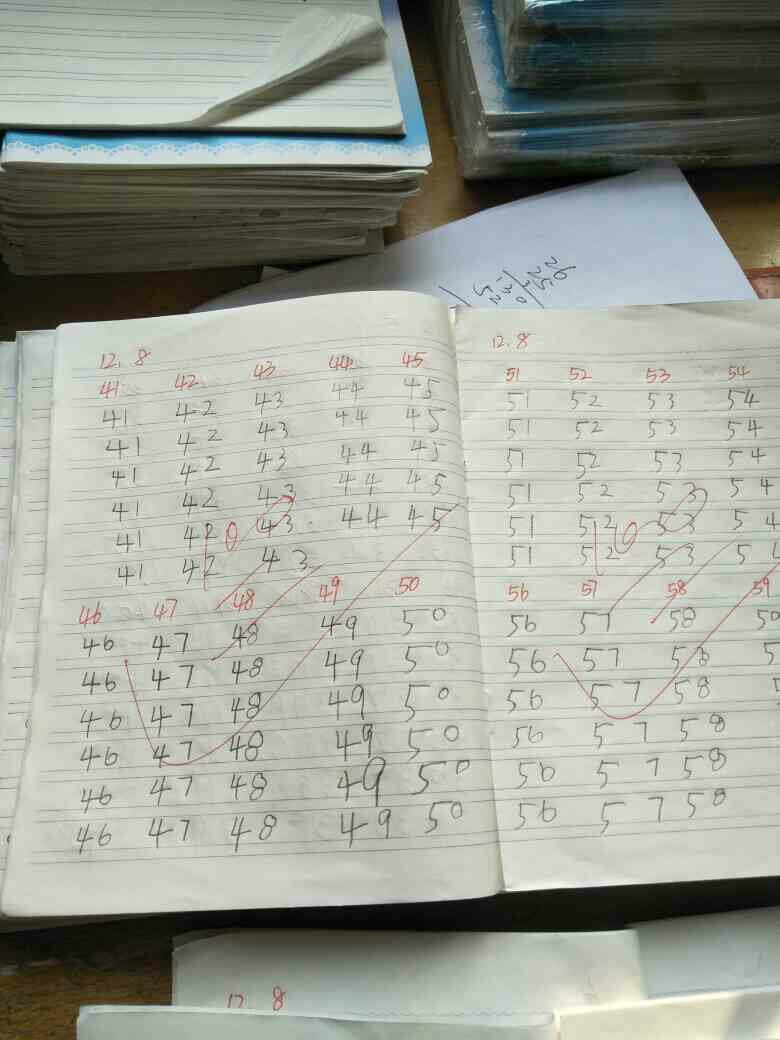 26
25
12.8
41 42 43 44 45
41 42 43 44 45
41 42 43 44 45
41 42 43 44 45
41 42 43 44 45
41 42 43 44 45
41 42 43
46 47 48 49 50
46 47 48 49 50
46 47 48 49 50
46 47 48 49 50
46 47 48 49 50
46 47 48 49 50
46 47 48 49 50
100
12.8
51 52 53 54
51 52 53 54
51 52 53 54
51 52 53 54
51 52 53 54
51 52 53 54
51 52 53 5
56 57 58 59
56 57 58
56 57 58 5
56 57 58
56 57 58
56 57 58
56 57 58
100
12.8